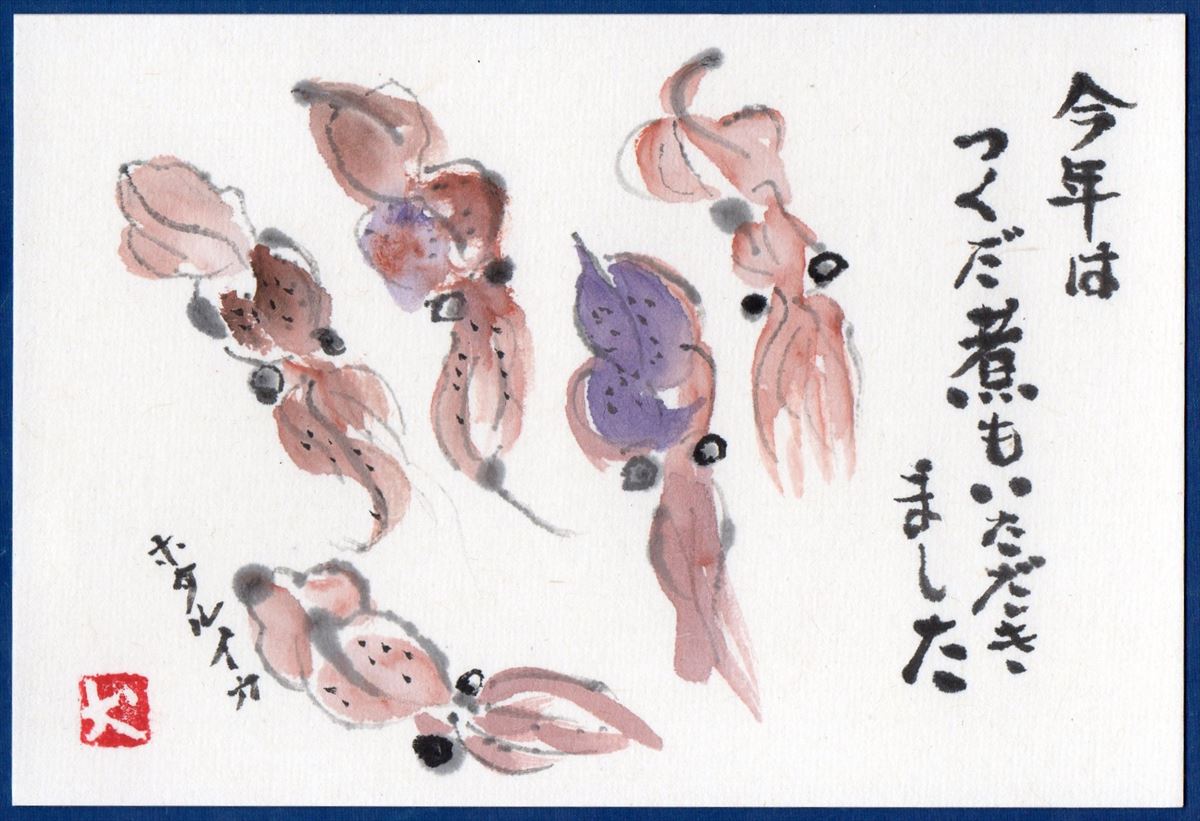 今年は
つくだ煮もいただき
ました
ホタルイカ